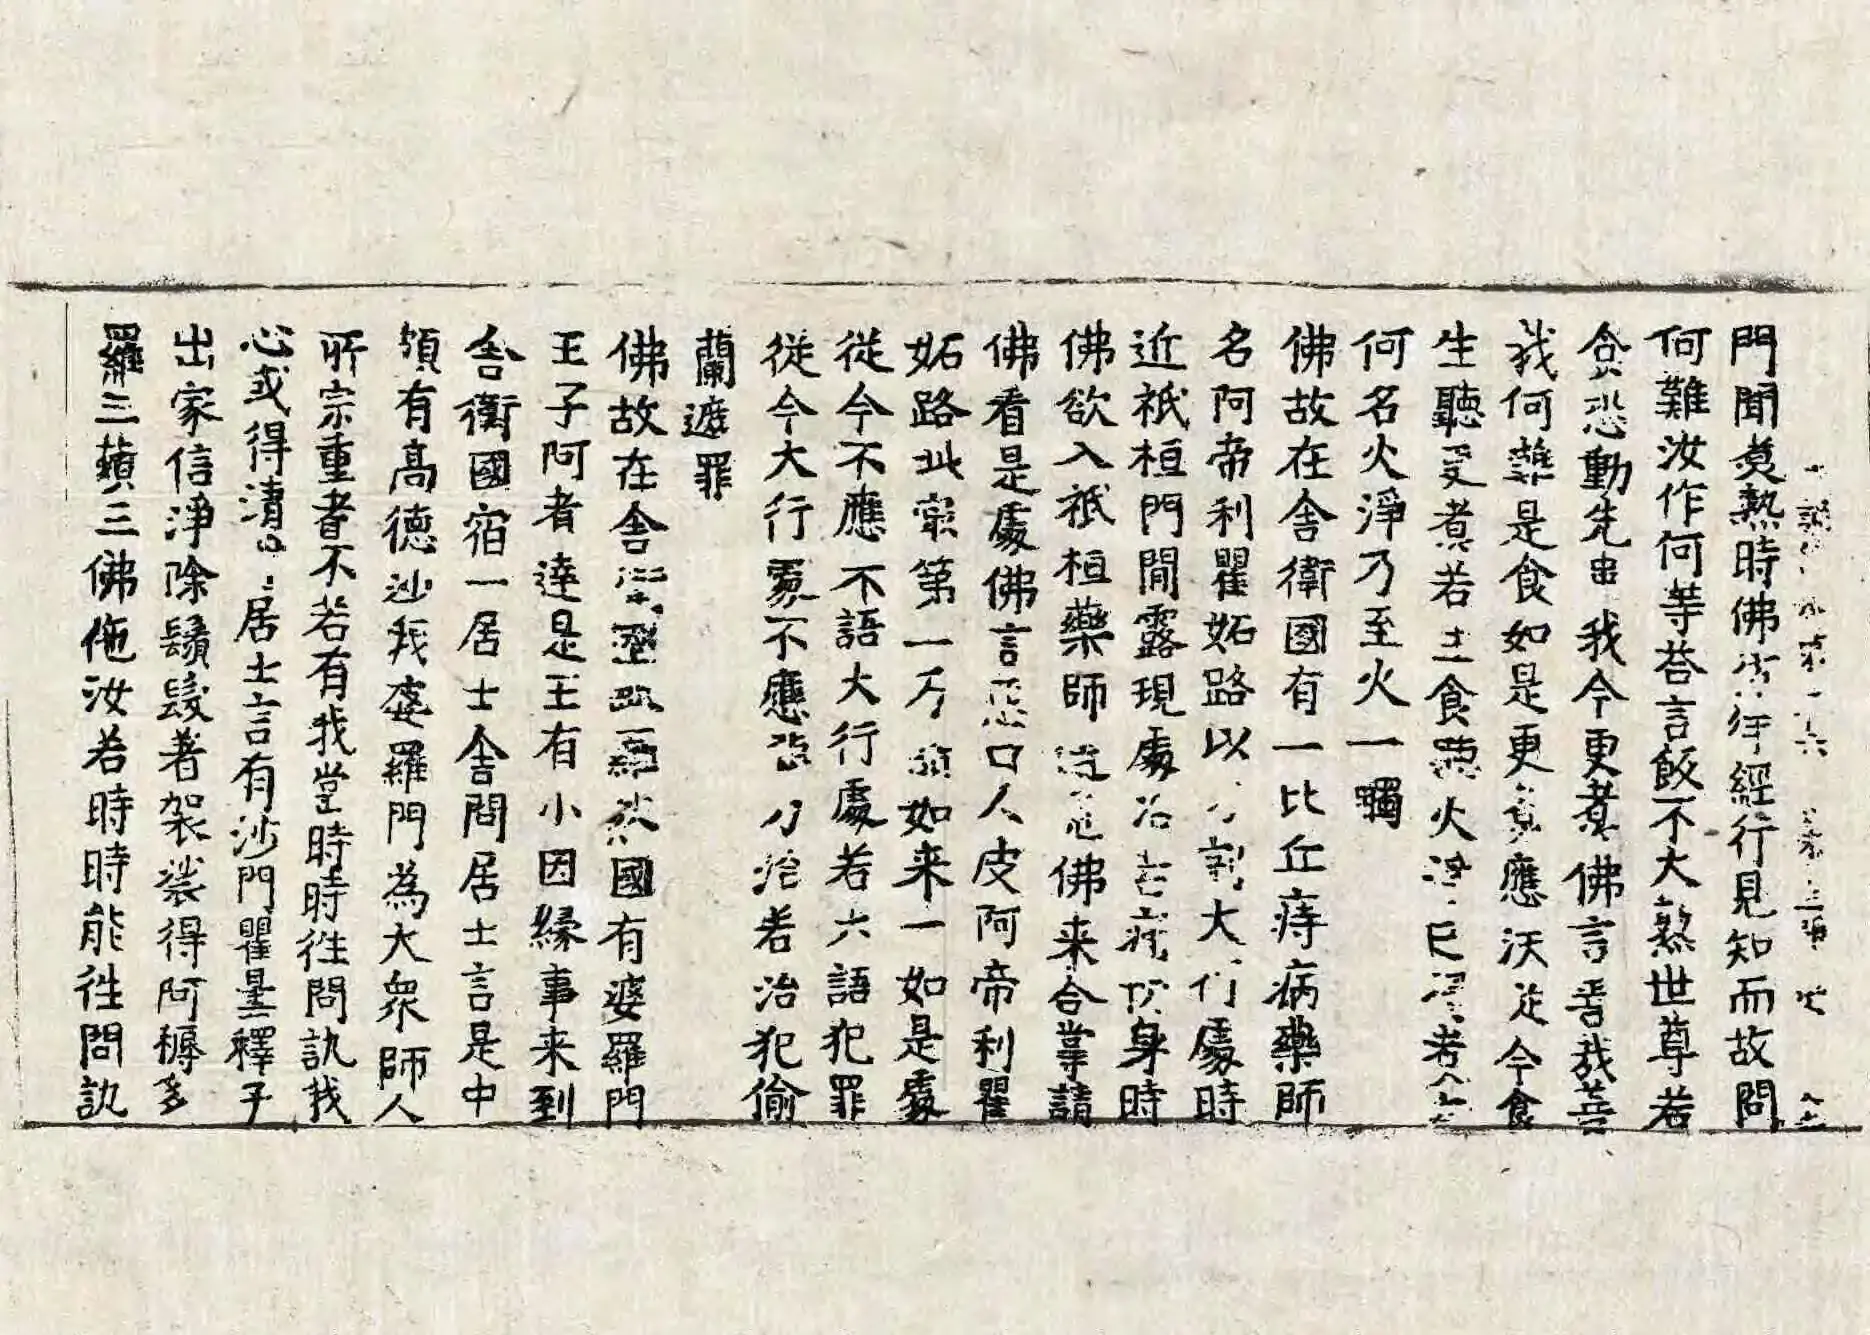 門間煑熟時佛 經行見知而故問
何難汝作何等荅言飯不大熟世尊若
貪 動先 我今更煮佛言善哉善
我何 是食如是更 應沃從今食
生聽受煮若 食 火淨 已 考
何名火淨乃至火一觸
佛故在舍衛國有一比丘痔病藥師
名阿帝利瞿妬路以刀 大行處時
近祇桓門間露現處治 身時
佛欲入祇桓藥師 佛来合掌請
佛看是處佛言惡口人皮阿帝利瞿
妬路此 第一 如来一如是處
從今不應不語大行處若六語犯罪
從今大行處不應 刀治若治犯偷
蘭遮罪
佛故在舍 國有婆羅門
王子阿者達是王有小因縁事来到
舍衛國宿一居士舍問居士言是中
頗有髙德沙 婆羅門為大衆師人
所宗重者不若有我當時時徃問訊我
心或得清 居士言有沙門瞿曇釋子
出家信淨除鬚髮著袈裟得阿耨多
羅三藐三佛陁汝若時時能徃問訊